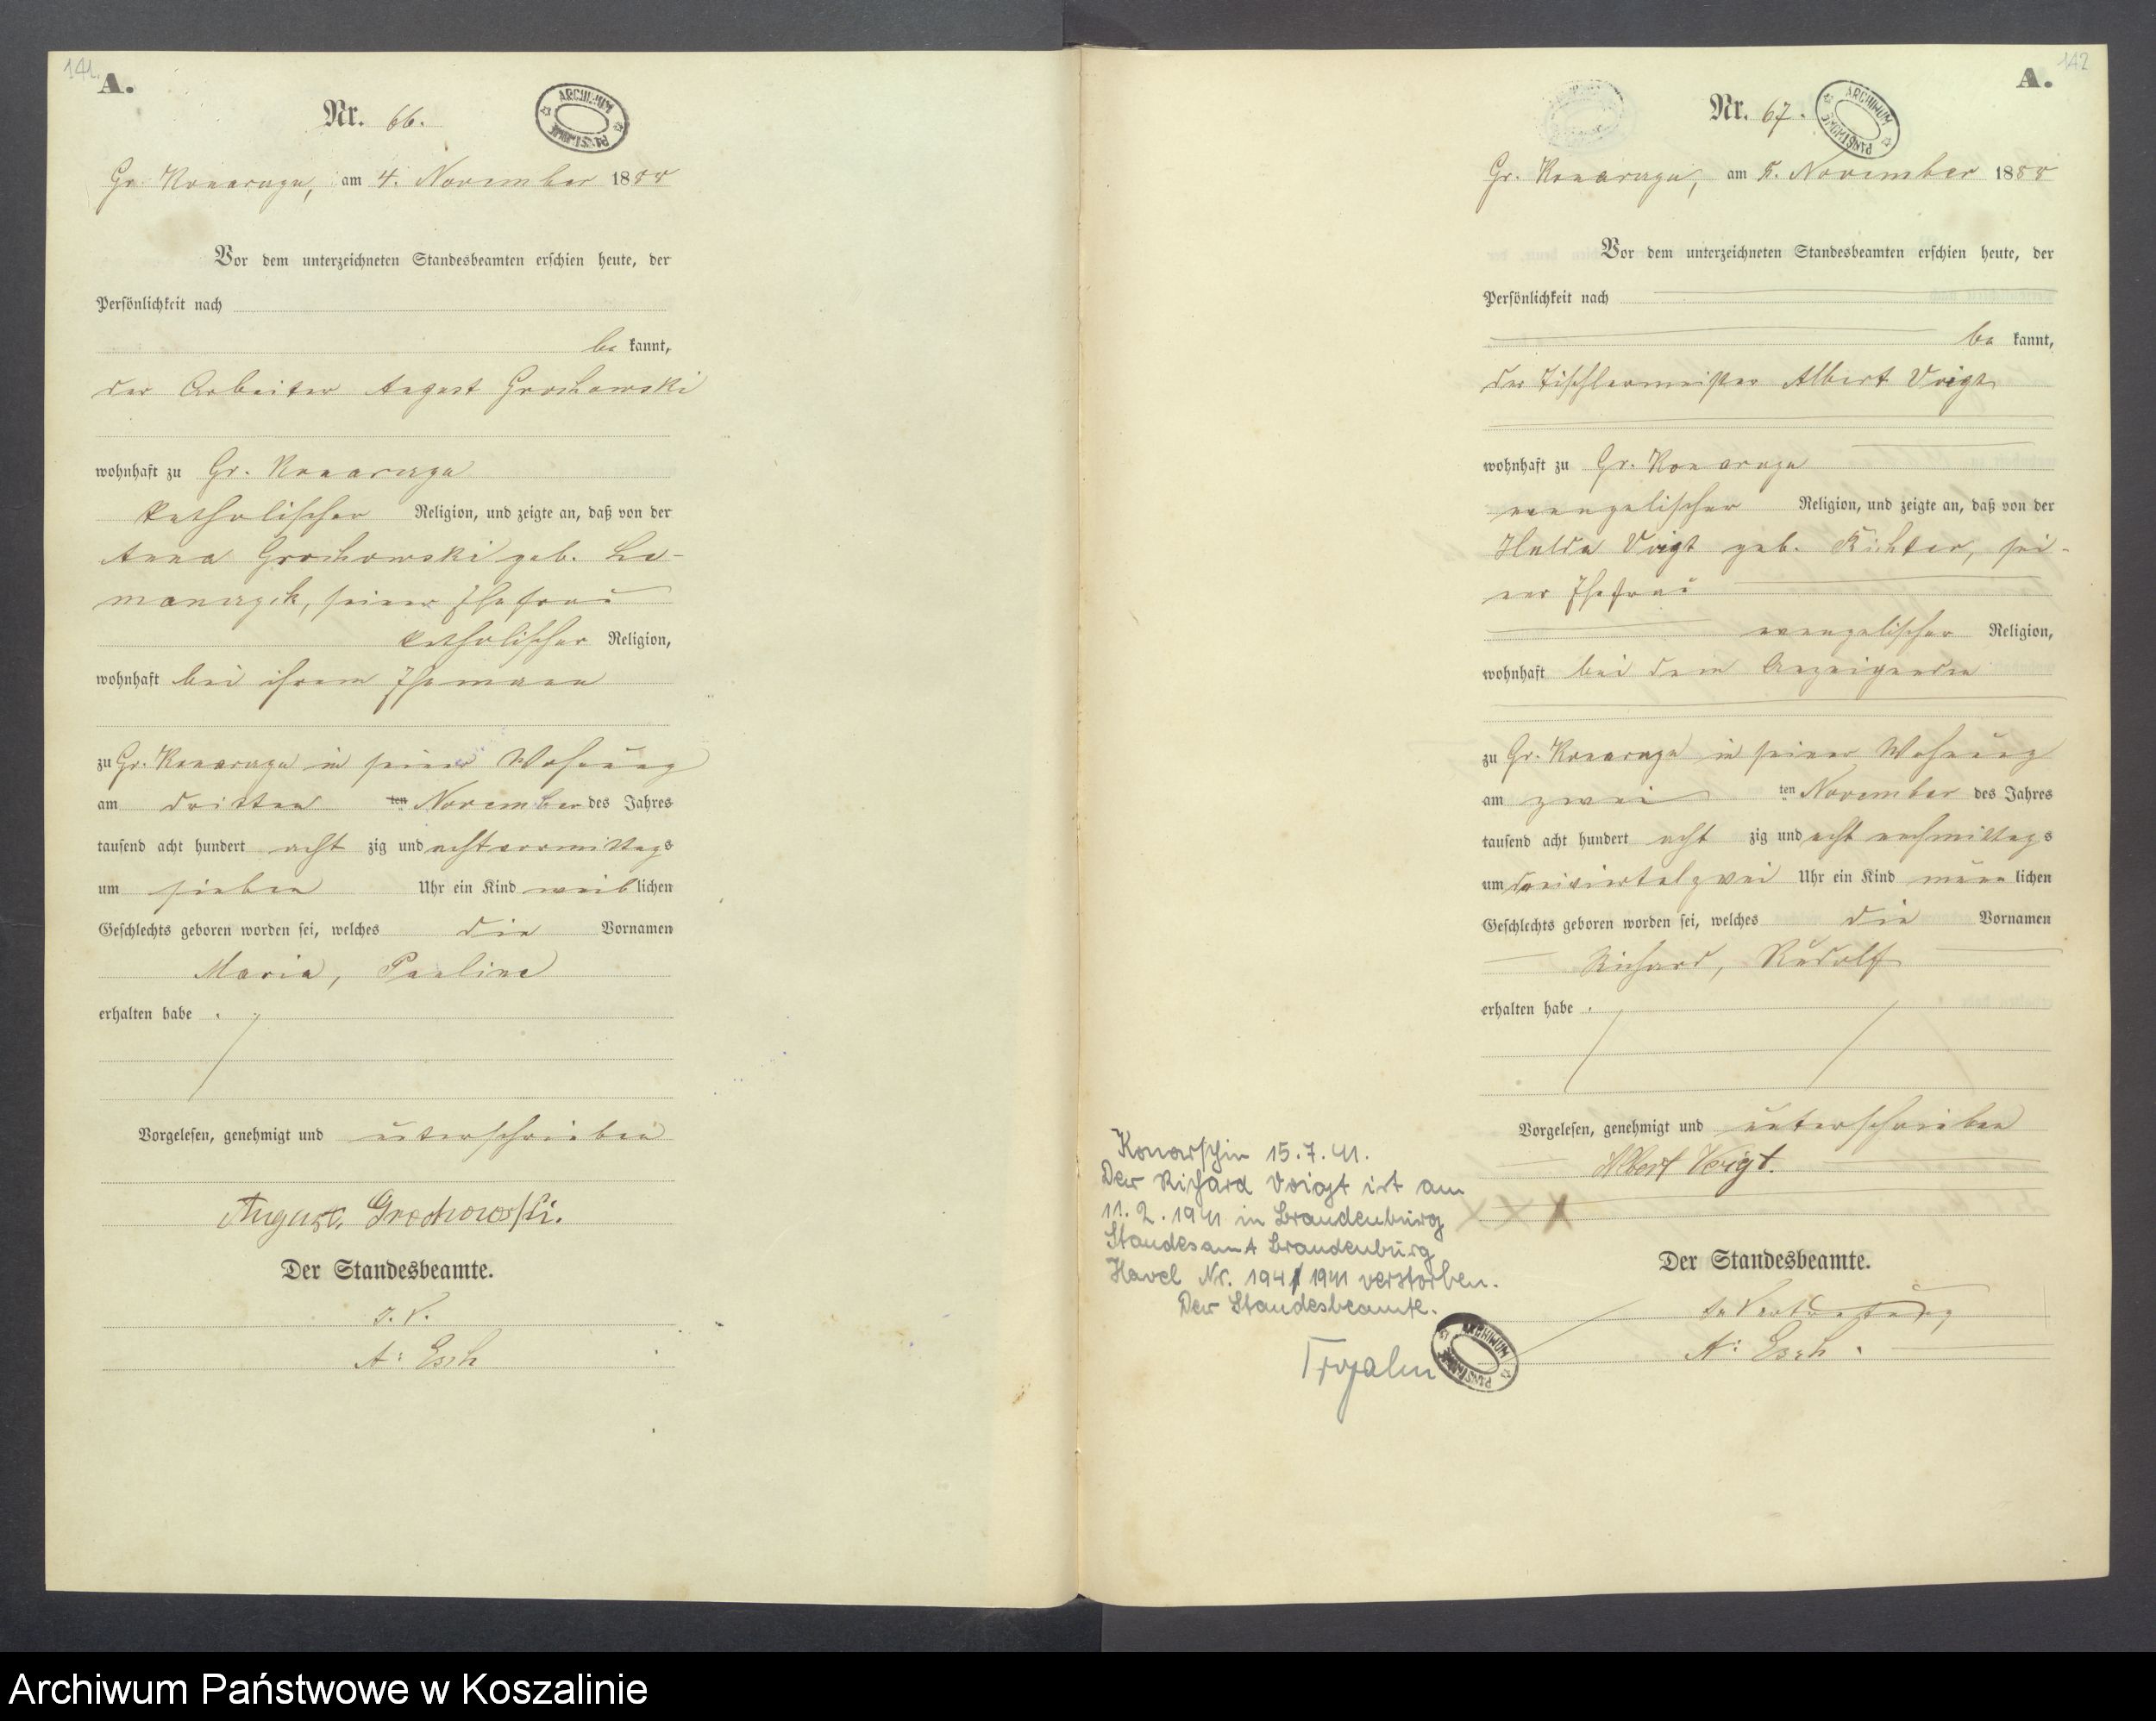 141.
A.
Nr. 66.
ARCHIWUM PAŃSTWOWE
Gr. Konarczyn, am 4. November 1888
Vor dem unterzeichneten Standesbeamten erschien heute, der
Persönlichkeit nach
be kannt,
der Arbeiter August Grochowski
wohnhaft zu Gr. Konarczyn
katholischer Religion, und zeigte an, daß von der
Anna Grochowski geb. Le-
manczyk, seiner Ehefrau
katholischer Religion,
wohnhaft bei ihrem Ehemann
zu Gr. Konarczyn in seiner Wohnung
am dritten ten November des Jahres
tausend acht hundert acht zig und acht vormittags
um sieben Uhr ein Kind weiblichen
Geschlechts geboren worden sei, welches die Vornamen
Maria, Pauline
erhalten habe .
Vorgelesen, genehmigt und unterschrieben
August Grochowski.
Der Standesbeamte.
I. V.
A: Esch
142
A.
Nr. 67.
ARCHIWUM PAŃSTWOWE
Gr. Konarczyn, am 5. November 1888
Vor dem unterzeichneten Standesbeamten erschien heute, der
Persönlichkeit nach
be kannt,
der Tischlermeister Albert Voigt
wohnhaft zu Gr. Konarczyn
evangelischer Religion, und zeigte an, daß von der
Hulda Voigt geb. Richter, sei-
ner Ehefrau
evangelischer Religion,
wohnhaft bei dem Anzeigenden
zu Gr. Konarczyn in seiner Wohnung
am zwei ten November des Jahres
tausend acht hundert acht zig und acht nachmittags
um dreiviertelzwei Uhr ein Kind männlichen
Geschlechts geboren worden sei, welches die Vornamen
Richard, Rudolf
erhalten habe .
Vorgelesen, genehmigt und unterschrieben
Albert Voigt.
Der Standesbeamte.
In Vertretung
A: Esch.
Konarschin 15.7.41.
Der Richard Voigt ist am
11.2.1941 in Brandenburg
Standesamt Brandenburg
Havel Nr. 194/1941 verstorben.
Der Standesbeamte.
XXX
ARCHIWUM PAŃSTWOWE
Archiwum Państwowe w Koszalinie